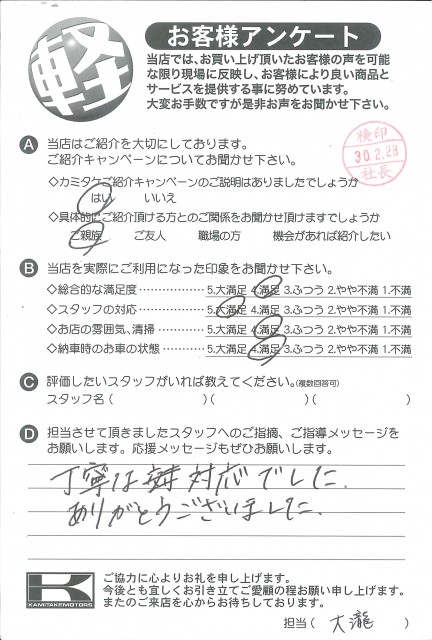 軽
お客様アンケート
当店では、お買い上げ頂いたお客様の声を可能
な限り現場に反映し、お客様により良い商品と
サービスを提供する事に努めています。
大変お手数ですが是非お声をお聞かせ下さい。
検印
30.2.28
社長
A 当店はご紹介を大切にしております。
ご紹介キャンペーンについてお聞かせ下さい。
◇カミタケご紹介キャンペーンのご説明はありましたでしょうか
はい いいえ
◇具体的にご紹介頂ける方とのご関係をお聞かせ頂けますでしょうか
ご親族 ご友人 職場の方 機会があれば紹介したい
B 当店を実際にご利用になった印象をお聞かせ下さい。
◇総合的な満足度 ‥‥‥‥‥‥ 5.大満足 4.満足 3.ふつう 2.やや不満 1.不満
◇スタッフの対応 ‥‥‥‥‥‥ 5.大満足 4.満足 3.ふつう 2.やや不満 1.不満
◇お店の雰囲気、清掃 ‥‥‥‥ 5.大満足 4.満足 3.ふつう 2.やや不満 1.不満
◇納車時のお車の状態 ‥‥‥‥ 5.大満足 4.満足 3.ふつう 2.やや不満 1.不満
C 評価したいスタッフがいれば教えてください。(複数回答可)
スタッフ名 ( )( )( )
D 担当させて頂きましたスタッフへのご指摘、ご指導メッセージを
お願いします。応援メッセージもぜひお願いします。
丁寧は 対応でした.
ありがとうございました.
K
KAMITAKEMOTORS
ご協力に心よりお礼を申し上げます。
今後とも宜しくお引き立てご愛顧の程お願い申し上げます。
またのご来店を心からお待ちしております。
担当 ( 大瀧 )